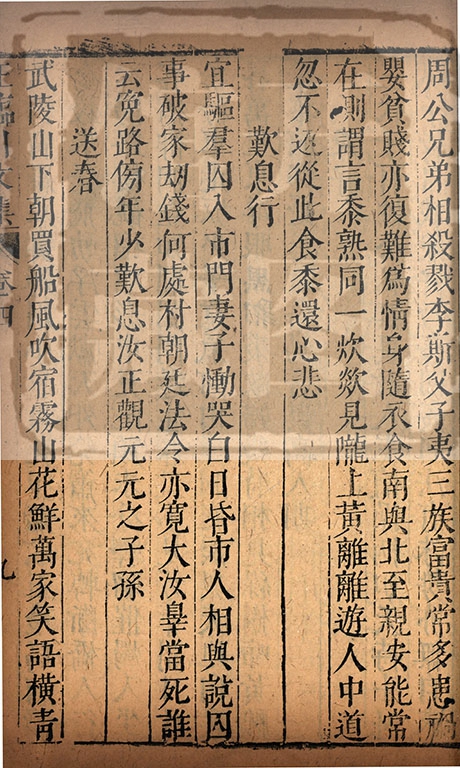 周公兄弟相殺戮李斯父子夷三族富貴常多患禍
嬰貧賤亦復難為情身隨衣食南與北至親安能常
在側謂言黍熟同一炊欻見隴上黃離離遊人中道
忽不返從此食黍還心悲
歎息行
官驅羣囚入市門妻子慟哭白日昏市人相與說囚
事破家劫錢何處村朝廷法令亦寬大汝辠當死誰
云冤路傍年少歎息汝正觀元元之子孫
送春
武陵山下朝買船風吹宿霧山花鮮萬家笑語橫青
王臨川文集 卷十四 九